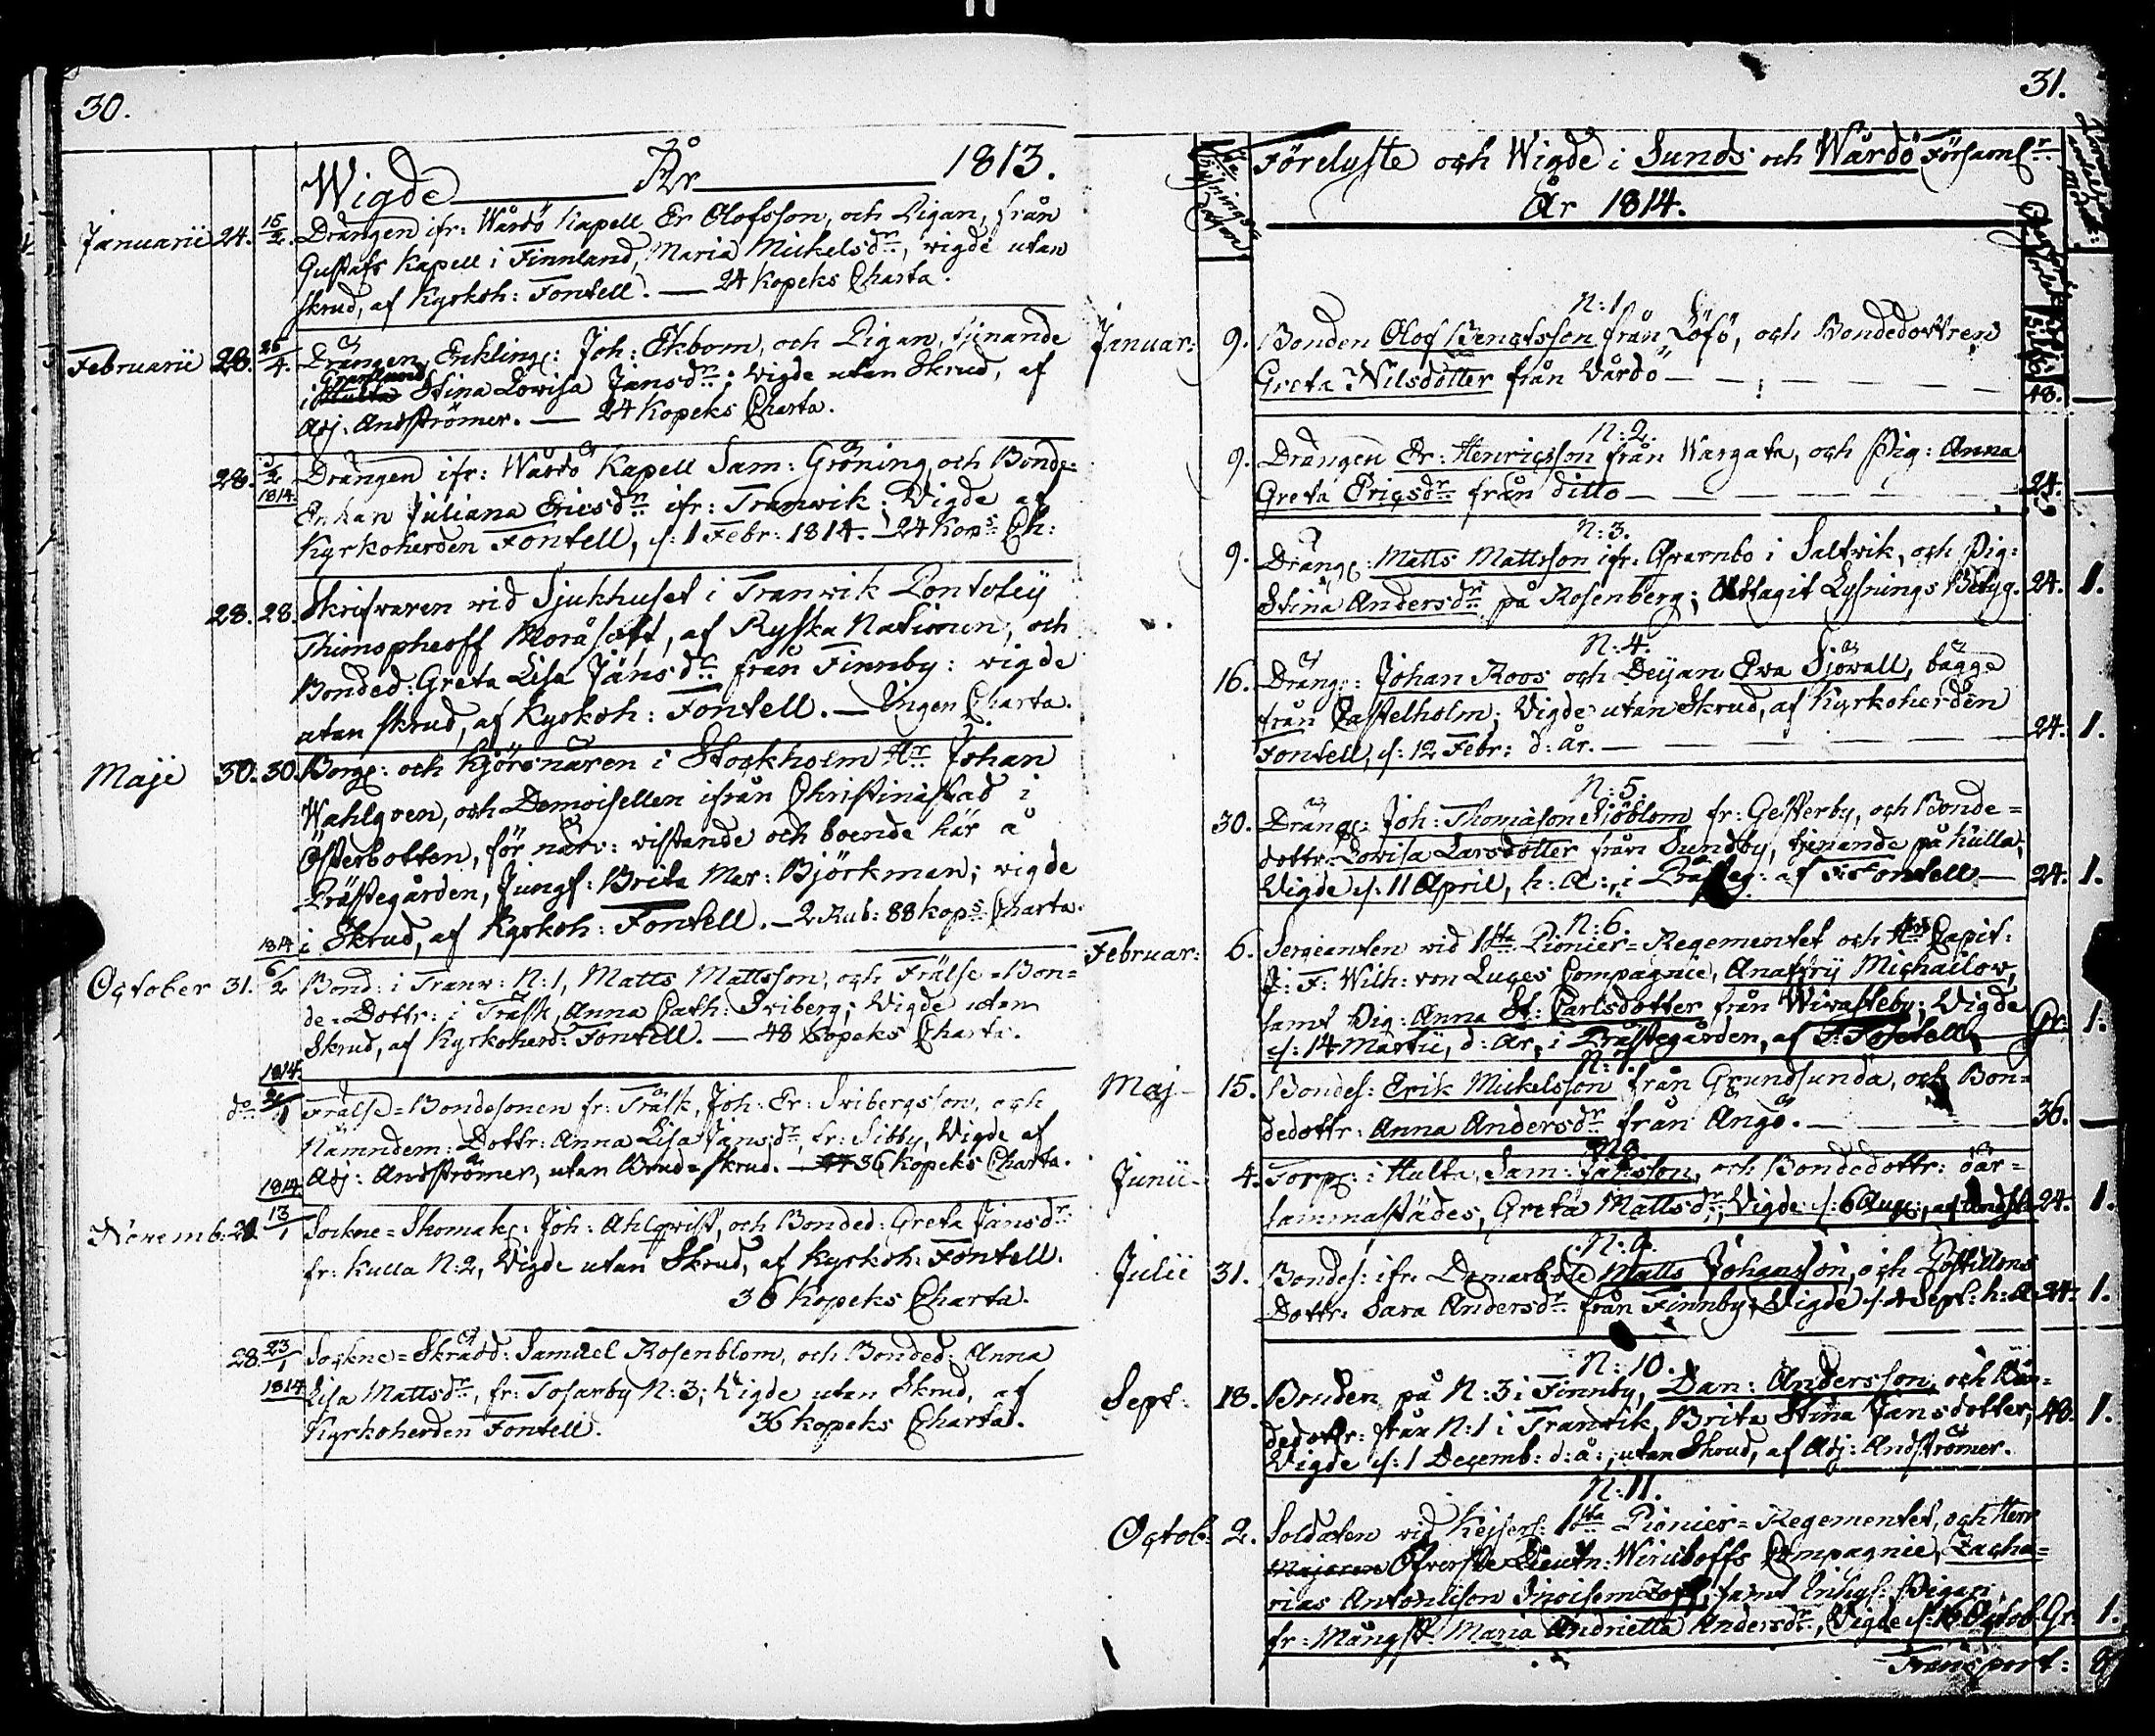 30.
Wigde År 1813.
Januarii 24. 15/2. Drängen ifr: Wårdö Kapell Er Olofsson, och Pigan, från
Gustafs Kapell i Finnland, Maria Mickelsdr, vigde utan
skrud, af Kyrkoh: Fontell. — 24 Kopeks Charta.
Februarii 28. 25/4. Drängen, Enkling: Joh: Ekbom, och Pigan, tjenande
i Hulta Stina Lovisa Jansdr; Vigde utan Skrud, af
Adj. Andströmer. — 24 Kopeks Charta.
28. 1/2 1814. Drängen ifr: Wårdö Kapell Sam: Gröning, och Bonde-
Enkan Juliana Ericsdr ifr: Tranwik: Vigde af
Kyrkoherden Fontell, d: 1 Febr: 1814. — 24 Kops Ch:
28. 28. Skrifvaren vid Sjukhuset i Tranvik Pontoleij
Thimopheoff, af Ryska Nationen, och
Bonded: Greta Lisa Jänsdr från Finnby: vigde
utan skrud, af Kyrkoh: Fontell. — Ingen Charta.
Maje 30. 30. Borg: och Kjörsnären i Stockholm Hr Johan
Wahlgren, och Demoisellen ifrån Christinæstad i
Österbotten, för närv: vistande och boende här å
Prästegården, Jungf: Brita Mar: Björkman; vigde
i Skrud, af Kyrkoh: Fontell. — 2 Rub: 88 kops Charta.
October 31. 1814 6/2 Bond: i Tranv: N:1, Matts Mattsson, och Frälse-Bon-
de-Dottr: i Träsk, Anna Cath: Sviberg; Vigde utan
Skrud, af Kyrkoherd: Fontell. — 48 Kopeks Charta.
do 1814. Frälse-Bondesonen fr: Träsk, Joh: Er: Svibergsson, och
Nämndem: Dottr: Anna Lisa Jansdr, fr: Sibby, Vigde af
Adj: Andströmer, utan Brud-skrud. — 36 Kopeks Charta.
Novemb: 21. 1814. 13/1 Sockne-Skomak: Joh: Ahlqwist, och Bonded: Greta Jänsdr
fr: Kulla N:2, Vigde utan Skrud, af Kyrkoh: Fontell.
36 Kopeks Charta.
28. 23/1 1814 Sockne-Skrädd: Samuel Rosenblom, och Bonded: Anna
Lisa Mattsdr, fr: Tosarby N:3; Vigde utan Skrud, af
Kyrkoherden Fontell. 36 kopeks Charta.
31.
Förelyste och Wigde i Sunds och Wårdö Församlr
År 1814.
N:1.
Januar: 9. Bonden Olof Bengtsson från Löfö, och Bondedottren
Greta Nilsdotter från Vårdö — 48. —
N:2.
9. Drängen Er: Henricsson från Wargata, och Pig: Anna
Greta Ericsdr från ditto — 24. —
N:3.
9. Dräng: Matts Mattsson ifr: Qvarnbo i Saltvik, och Pig:
Stina Andersdr på Rosenberg; Uttagit Lysnings Betyg. 24. 1.
N:4.
16. Dräng: Johan Roos och Deijan Ewa Sjöwall, bägge
från Castelholm; Vigde utan Skrud, af Kyrkoherden
Fontell, d: 12 Febr: d: år. — 24. 1.
N:5.
30. Dräng: Joh: Thomason Sjöblom fr: Gesterby, och Bonde-
dottr: Lovisa Larsdotter från Sundby, tjenande på Kulla,
Vigde d: 11 April, h: a:, i Prästeg: af F: Fontell — 24. 1.
N:6.
Februar: 6. Sergeanten vid 1sta Pionier-Regementet och Hrs Capit:
J: F: Wilh: von Luçes Compagnie, Anaffrij Michailow,
samt Pig: Anna St: Carlsdotter från Wivasteby; Vigde
d: 14 Martii, d: År, i Prästegården, af F: Fontell — Gr: 1.
N:7.
Maj 15. Bondes: Erik Mickelsson från Grundsunda, och Bon-
dedottr: Anna Andersdr från Ängö. — 36. —
N:8.
Junii 4. Torp: i Hulta, Sam: Jansson, och Bondedottr: där-
sammastädes, Greta Mattsdr, Vigde d: 6 Aug:, af Andst: 24. 1.
N:9.
Julii 31. Bondes: ifr: Domarböle Matts Johansson, och Postillons
Dottr: Sara Andersdr från Finnby; Vigde d: 4 Sept: h: a. 24. 1.
N:10.
Sept: 18. Bonden på N:3 i Finnby, Dan: Andersson, och Bon-
dedottr: från N:1 i Tranvik, Brita Stina Jansdotter, 48. 1.
Vigde d: 1 Decemb: d: å:, utan Skrud, af Adj: Andströmer.
N:11.
Octob: 2. Soldaten vid Kejserl: 1sta Pionier-Regementet, och Herr
Majoren Öfverste Lieutn: Compagnie, Zacha-
rias Antonlison, samt Pigan
fr: Mångst: Maria Andrietta Andersdr, Vigde d: 16 Octob. Gr: 1.
Transport: 8